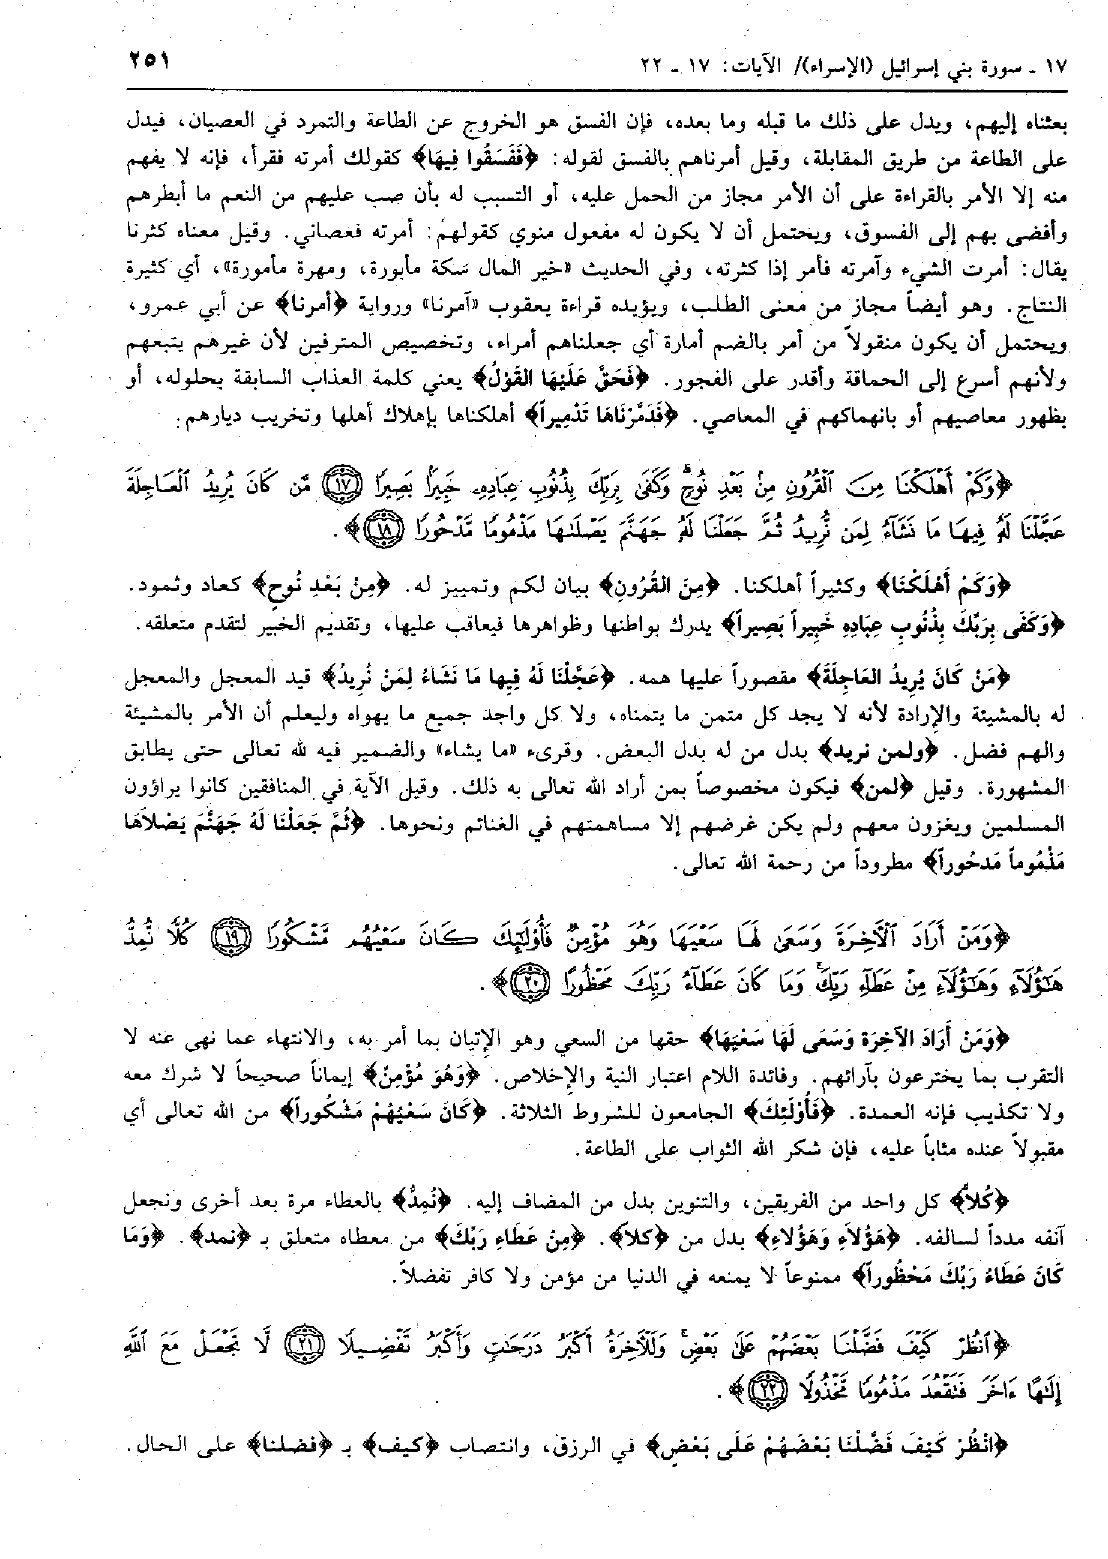 ١٧ ـ سورة بني إسرائيل (الإسراء)/ الآيات: ١٧ ـ ٢٢
٢٥١
بعثناه إليهم، ويدل على ذلك ما قبله وما بعده، فإن الفسق هو الخروج عن الطاعة والتمرد في العصيان، فيدل
على الطاعة من طريق المقابلة، وقيل أمرناهم بالفسق لقوله: ﴿فَفَسَقُوا فِيهَا﴾ كقولك أمرته فقرأ، فإنه لا يفهم
منه إلا الأمر بالقراءة على أن الأمر مجاز من الحمل عليه، أو التسبب له بأن صب عليهم من النعم ما أبطرهم
وأفضى بهم إلى الفسوق، ويحتمل أن لا يكون له مفعول منوي كقولهم: أمرته فعصاني. وقيل معناه كثرنا
يقال: أمرت الشيء وآمرته فأمر إذا كثرته، وفي الحديث «خير المال سكة مأبورة، ومهرة مأمورة»، أي كثيرة
النتاج. وهو أيضاً مجاز من معنى الطلب، ويؤيده قراءة يعقوب «آمرنا» ورواية ﴿أمرنا﴾ عن أبي عمرو،
ويحتمل أن يكون منقولاً من أمر بالضم أمارة أي جعلناهم أمراء، وتخصيص المترفين لأن غيرهم يتبعهم
ولأنهم أسرع إلى الحماقة وأقدر على الفجور. ﴿فَحَقَّ عَلَيْهَا القَوْلُ﴾ يعني كلمة العذاب السابقة بحلوله، أو
بظهور معاصيهم أو بانهماكهم في المعاصي. ﴿فَدَمَّرْنَاهَا تَدْمِيراً﴾ أهلكناها بإهلاك أهلها وتخريب ديارهم.
﴿وَكَمْ أَهْلَكْنَا مِنَ ٱلْقُرُونِ مِنۢ بَعْدِ نُوحٍۗ وَكَفَىٰ بِرَبِّكَ بِذُنُوبِ عِبَادِهِۦ خَبِيرًۢا بَصِيرًا ﴿١٧﴾ مَّن كَانَ يُرِيدُ ٱلْعَاجِلَةَ
عَجَّلْنَا لَهُۥ فِيهَا مَا نَشَآءُ لِمَن نُّرِيدُ ثُمَّ جَعَلْنَا لَهُۥ جَهَنَّمَ يَصْلَىٰهَا مَذْمُومًا مَّدْحُورًا ﴿١٨﴾﴾.
﴿وَكَمْ أَهْلَكْنَا﴾ وكثيراً أهلكنا. ﴿مِنَ القُرُونِ﴾ بيان لكم وتمييز له. ﴿مِنْ بَعْدِ نُوحٍ﴾ كعاد وثمود.
﴿وَكَفَى بِرَبِّكَ بِذُنُوبِ عِبَادِهِ خَبِيراً بَصِيراً﴾ يدرك بواطنها وظواهرها فيعاقب عليها، وتقديم الخبير لتقدم متعلقه.
﴿مَنْ كَانَ يُرِيدُ العَاجِلَةَ﴾ مقصوراً عليها همه. ﴿عَجَّلْنَا لَهُ فِيهَا مَا نَشَاءُ لِمَنْ نُرِيدُ﴾ قيد المعجل والمعجل
له بالمشيئة والإرادة لأنه لا يجد كل متمن ما يتمناه، ولا كل واجد جميع ما يهواه وليعلم أن الأمر بالمشيئة
والهم فضل. ﴿ولمن نريد﴾ بدل من له بدل البعض. وقرىء «ما يشاء» والضمير فيه لله تعالى حتى يطابق
المشهورة. وقيل ﴿لمن﴾ فيكون مخصوصاً بمن أراد الله تعالى به ذلك. وقيل الآية في المنافقين كانوا يراؤون
المسلمين ويغزون معهم ولم يكن غرضهم إلا مساهمتهم في الغنائم ونحوها. ﴿ثُمَّ جَعَلْنَا لَهُ جَهَنَّمَ يَصْلاَهَا
مَذْمُوماً مَدحُوراً﴾ مطروداً من رحمة الله تعالى.
﴿وَمَنْ أَرَادَ ٱلْآخِرَةَ وَسَعَىٰ لَهَا سَعْيَهَا وَهُوَ مُؤْمِنٌ فَأُو۟لَٰٓئِكَ كَانَ سَعْيُهُم مَّشْكُورًا ﴿١٩﴾ كُلًّا نُّمِدُّ
هَٰٓؤُلَآءِ وَهَٰٓؤُلَآءِ مِنْ عَطَآءِ رَبِّكَۚ وَمَا كَانَ عَطَآءُ رَبِّكَ مَحْظُورًا ﴿٢٠﴾﴾.
﴿وَمَنْ أَرَادَ الآخِرَةَ وَسَعَى لَهَا سَعْيَهَا﴾ حقها من السعي وهو الإتيان بما أمر به، والانتهاء عما نهى عنه لا
التقرب بما يخترعون بآرائهم. وفائدة اللام اعتبار النية والإخلاص. ﴿وَهُوَ مُؤْمِنٌ﴾ إيماناً صحيحاً لا شرك معه
ولا تكذيب فإنه العمدة. ﴿فَأُوْلَئِكَ﴾ الجامعون للشروط الثلاثة. ﴿كَانَ سَعْيُهُمْ مَشْكُوراً﴾ من الله تعالى أي
مقبولاً عنده مثاباً عليه، فإن شكر الله الثواب على الطاعة.
﴿كُلاًّ﴾ كل واحد من الفريقين، والتنوين بدل من المضاف إليه. ﴿نُمِدُّ﴾ بالعطاء مرة بعد أخرى ونجعل
آنفه مدداً لسالفه. ﴿هَؤُلاَءِ وَهَؤُلاَءِ﴾ بدل من ﴿كلاً﴾. ﴿مِنْ عَطَاءِ رَبِّكَ﴾ من معطاه متعلق بـ ﴿نمد﴾. ﴿وَمَا
كَانَ عَطَاءُ رَبِّكَ مَحْظُوراً﴾ ممنوعاً لا يمنعه في الدنيا من مؤمن ولا كافر تفضلاً.
﴿ٱنظُرْ كَيْفَ فَضَّلْنَا بَعْضَهُمْ عَلَىٰ بَعْضٍۚ وَلَلْآخِرَةُ أَكْبَرُ دَرَجَٰتٍ وَأَكْبَرُ تَفْضِيلًا ﴿٢١﴾ لَّا تَجْعَلْ مَعَ ٱللَّهِ
إِلَٰهًا ءَاخَرَ فَتَقْعُدَ مَذْمُومًا مَّخْذُولًا ﴿٢٢﴾﴾.
﴿انْظُرْ كَيْفَ فَضَّلْنَا بَعْضَهُمْ عَلَى بَعْضٍ﴾ في الرزق، وانتصاب ﴿كيف﴾ بـ ﴿فضلنا﴾ على الحال.